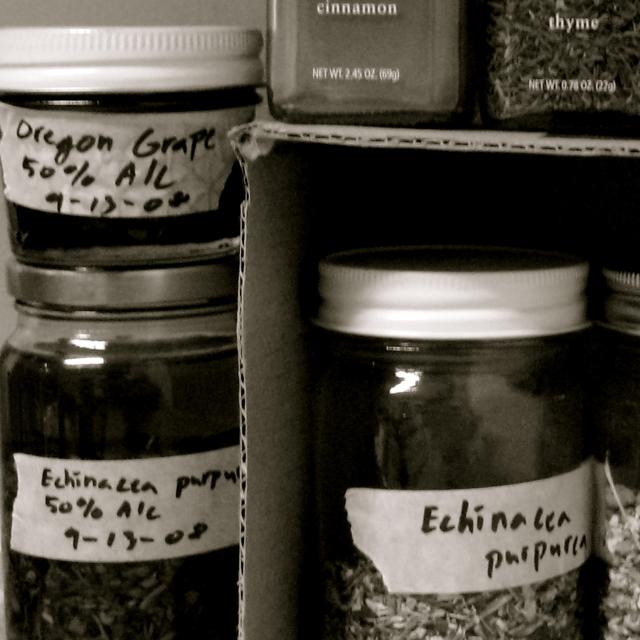 cinnamon
NET WT. 2.45 OZ. (69g)
thyme
NET WT. 0.78 OZ. (22g)
Oregon Grape
50% Alc
9-13-08
Echinacea purpu
50% Alc
9-13-08
Echinacea
purpurea